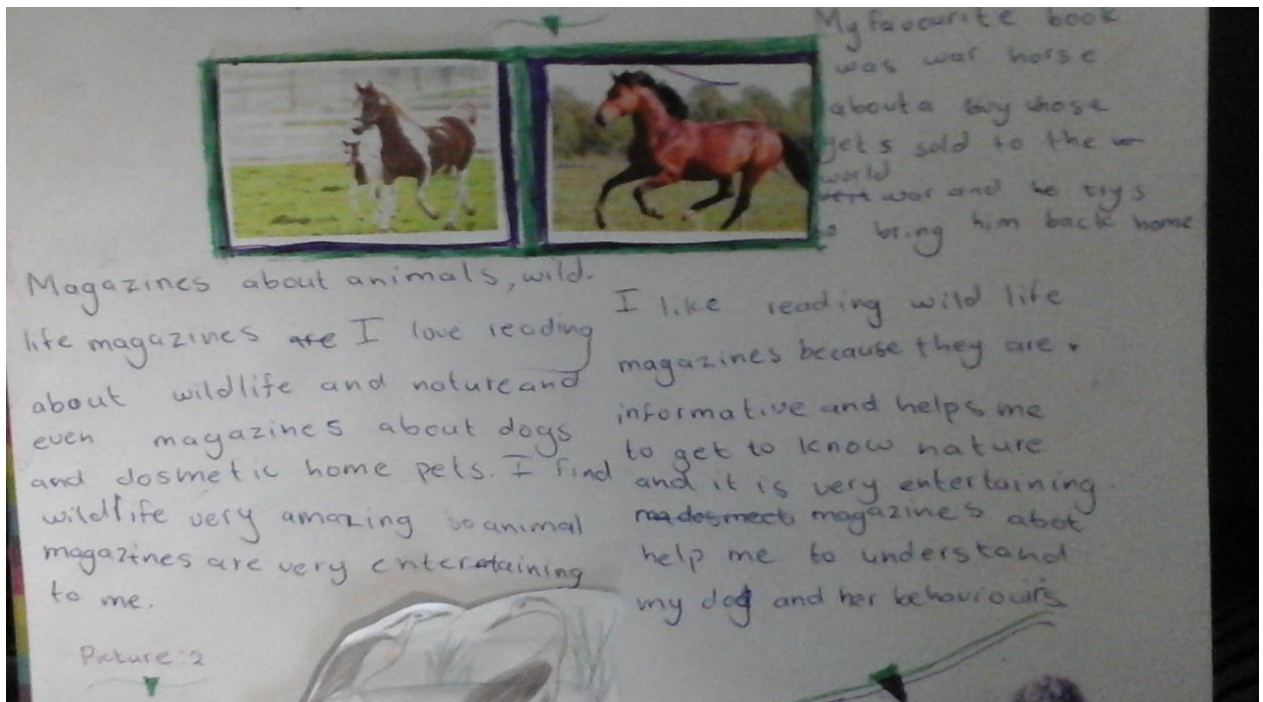 My favourite book
was war horse
about a boy whose
gets sold to the
world
war and he trys
bring him back home
Magazines about animals, wild-
life magazines are I love reading
about wildlife and nature and
even magazines about dogs
and dosmetic home pets. I find
wildlife very amazing so animal
magazines are very entertaining
to me.
I like reading wild life
magazines because they are
informative and helps me
to get to know nature
and it is very entertaining.
magazines abot
help me to understand
my dog and her behaviours
Picture:2